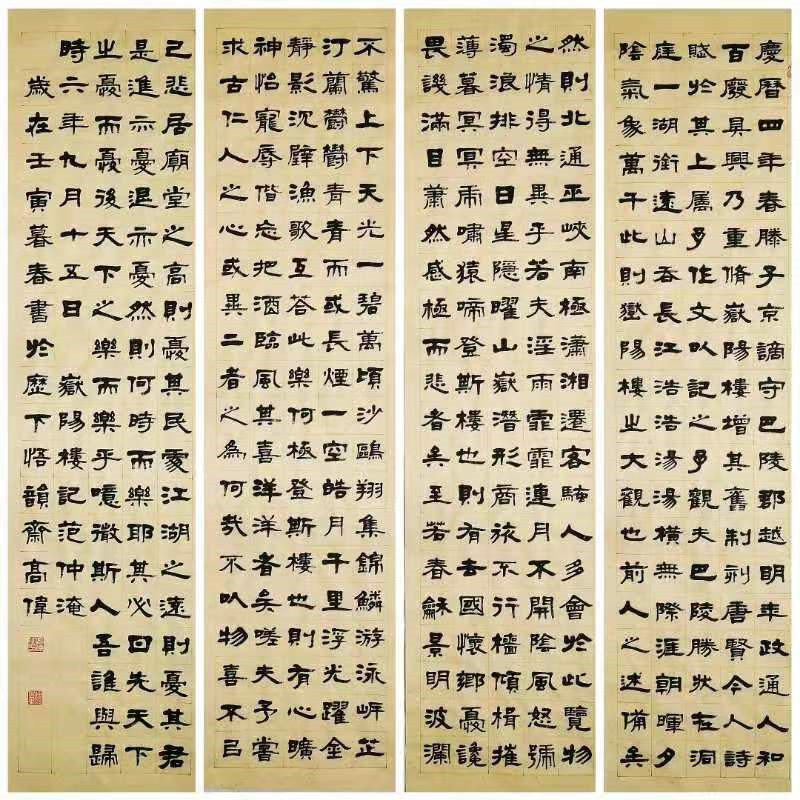 慶曆四年春滕子京謫守巴陵郡越明年政通人和
百廢具興乃重脩嶽陽樓增其舊制刻唐賢今人詩
賦於其上屬予作文以記之予觀夫巴陵勝狀在洞
庭一湖銜遠山吞長江浩浩湯湯橫無際涯朝暉夕
陰氣象萬千此則嶽陽樓之大觀也前人之述備矣
然則北通巫峽南極瀟湘遷客騷人多會於此覽物
之情得無異乎若夫淫雨霏霏連月不開陰風怒號
濁浪排空日星隱曜山嶽潛形商旅不行檣傾楫摧
薄暮冥冥虎嘯猿啼登斯樓也則有去國懷鄉憂讒
畏譏滿目蕭然感極而悲者矣至若春龢景明波瀾
不驚上下天光一碧萬頃沙鷗翔集錦鱗游泳岸芷
汀蘭鬱鬱青青而或長煙一空皓月千里浮光躍金
靜影沉璧漁歌互答此樂何極登斯樓也則有心曠
神怡寵辱偕忘把酒臨風其喜洋洋者矣嗟夫予嘗
求古仁人之心或異二者之為何哉不以物喜不以
己悲居廟堂之高則憂其民處江湖之遠則憂其君
是進亦憂退亦憂然則何時而樂耶其必曰先天下
之憂而憂後天下之樂而樂乎噫微斯人吾誰與歸
時六年九月十五日 嶽陽樓記范仲淹
歲在壬寅暮春書於歷下悟韻齋高偉